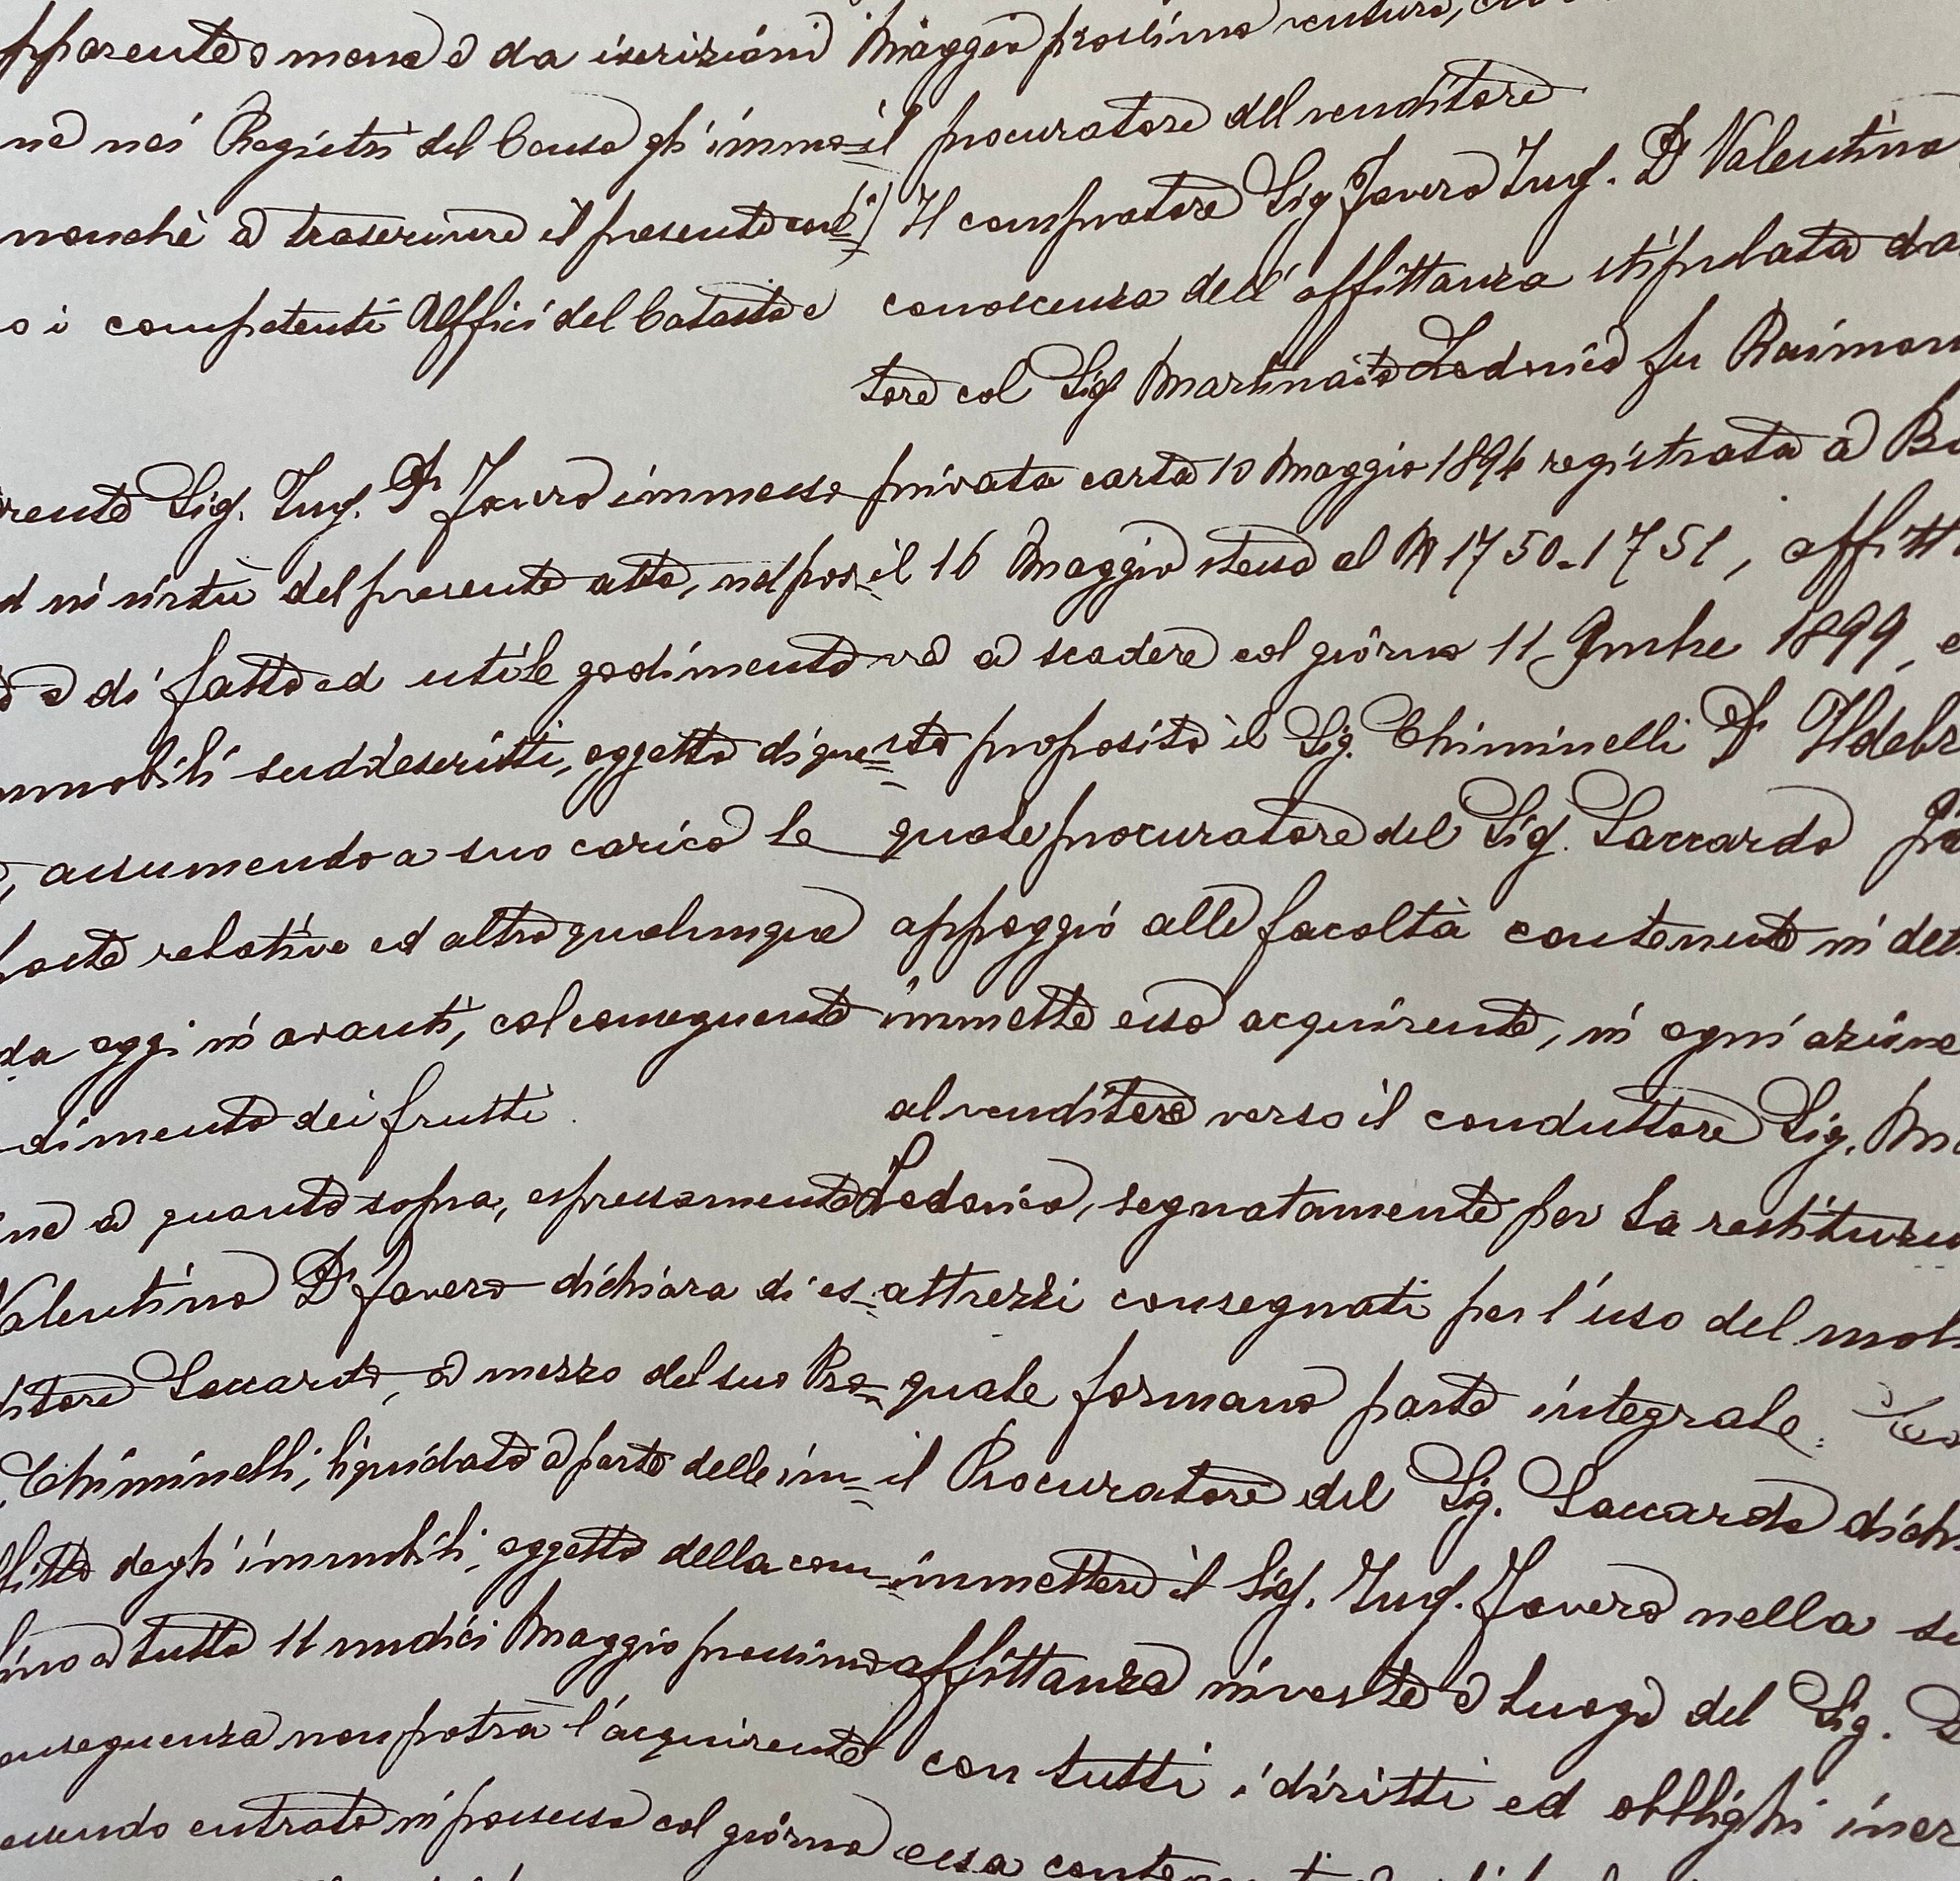 apparenteno meno e da iscrizioni
ne nei Registri del Censo gli immo=
nonchè a trascrivere il presente con=
o i competenti Uffici del Catasto e
rente Sig. Ing. Dr Javero immesso
ed in virtù del presente atto, nel pos=
o e di fatto ed utile godimento
immobili suddescritti, oggetto di que=
, assumendo a suo carico le
poste relative ed altro qualunque
da oggi in avanti, col conseguente
dimento dei frutti.
ne a quanto sopra, espressamente
Valentino Dr Javero dichiara di es=
ditore Saccardo, a mezzo del suo Pro=
Chiminelli, liquidato a parte delle im=
fitto degli immobili, oggetto della com=
fino a tutto 11 undici Maggio prossimo
conseguenza non potrà l'acquirente
essendo entrato in possesso col giorno
Maggio prossimo venturo,
il procuratore del venditore
Il compratore Sig Javero Ing. Dr Valentino
conoscenza dell'affittanza stipulata da
tore col Sig Martinato Lodovico fu Raimon
privata carta 10 Maggio 1894 registrata a
il 16 Maggio stesso al N 1750-1751, affitt
va a scadere col giorno 11 9mbre 1899, e
sto proposito il Sig. Chiminelli Dr Ildebr
quale procuratore del Sig. Saccardo
appoggio alle facoltà contenute in det
immette esso acquirente, in ogni azione
al venditore verso il conduttore Sig. Ma
Lodovico, segnatamente per la restituzio
attrezzi consegnati per l'uso del mol
quale formano parte integrale.
il Procuratore del Sig. Saccardo dich
immettere il Sig. Ing. Javero nella su
affittanza in veste e luogo del Sig. S
con tutti i diritti ed obblighi iner
essa